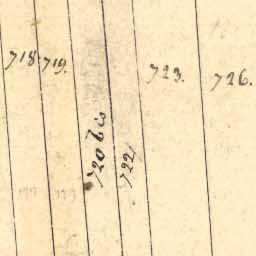 718.
719.
720 bis
722.
723.
726.